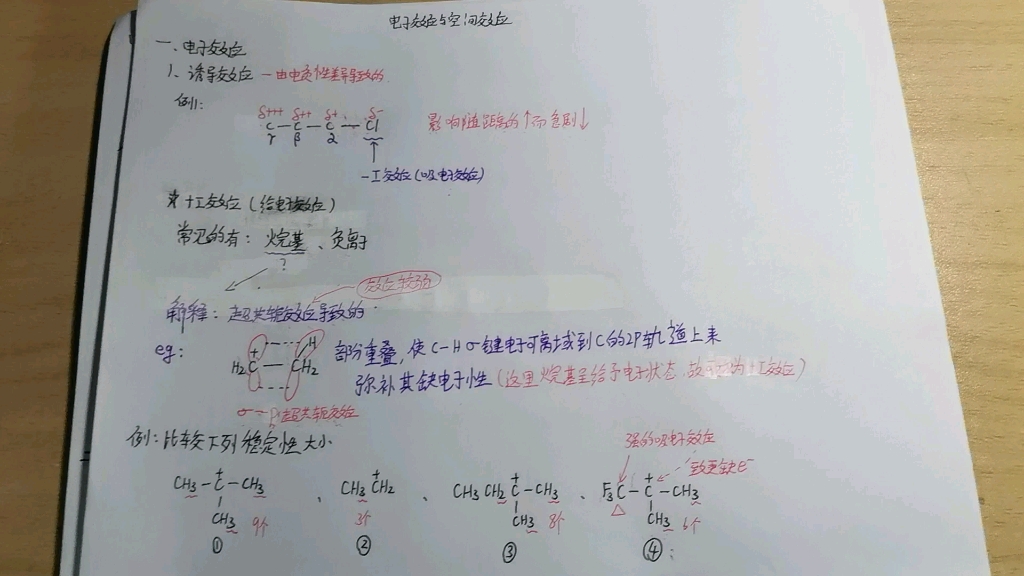 电子效应与空间效应
一、电子效应
1、诱导效应 —由电负性差异导致的.
例1:
δ+++ δ++ δ+ δ-
C — C — C — Cl 影响随距离的↑而急剧↓
γ β α
-I效应(吸电子效应)
* +I效应(给电子效应)
常见的有: 烷基、负离子
?
效应较弱
解释: 超共轭效应导致的.
eg: H₂C⁺ — CH₂ H 部分重叠,使C-Hσ键电子可离域到C的2P轨道上来
弥补其缺电子性(这里烷基呈给予电子状态.故称为+I效应)
σ-P超共轭效应
例: 比较下列稳定性大小
强的吸电子效应
致更缺e⁻
CH₃-C⁺-CH₃ 、 CH₃C⁺H₂ 、 CH₃CH₂C⁺-CH₃ 、 F₃C-C⁺-CH₃
CH₃ 9个 3个 CH₃ 8个 △ CH₃ 6个
① ② ③ ④ :